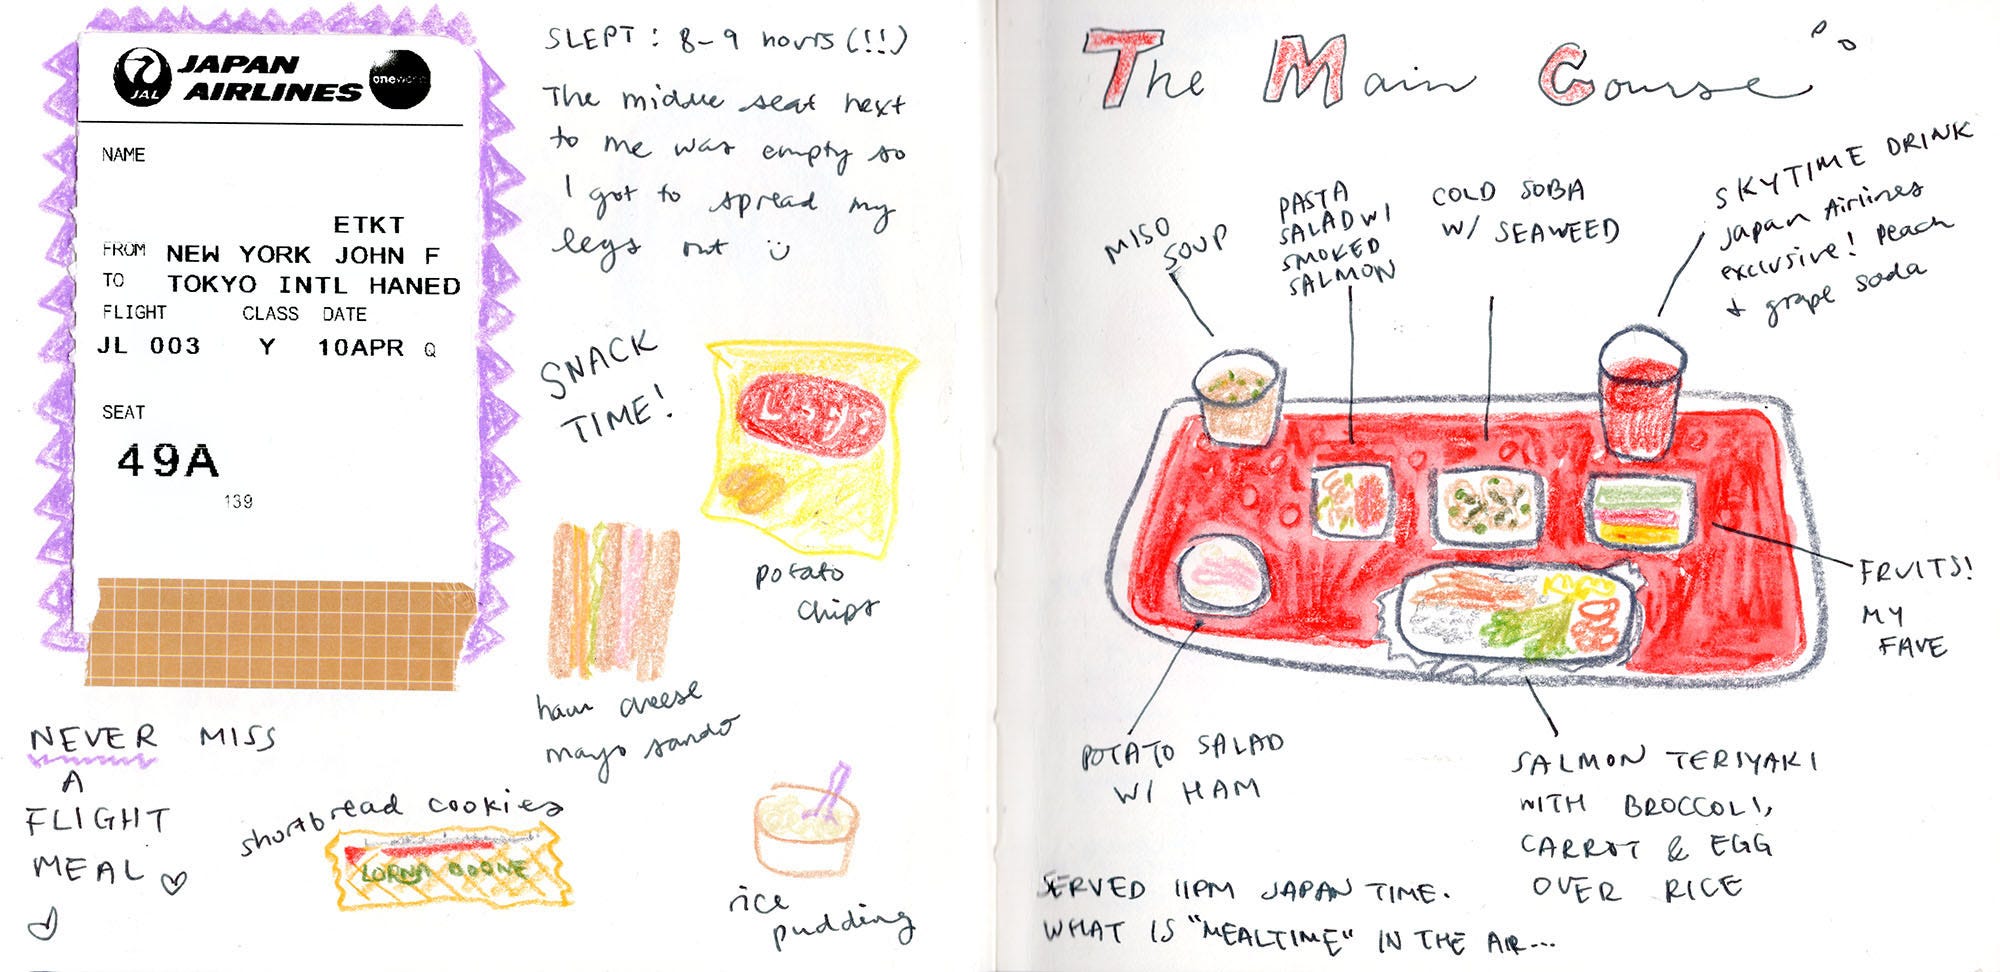 JAPAN
AIRLINES
JAL
oneworld
NAME
ETKT
FROM NEW YORK JOHN F
TO TOKYO INTL HANED
FLIGHT CLASS DATE
JL 003 Y 10APR Q
SEAT
49A
139
NEVER MISS
A
FLIGHT
MEAL
SLEPT : 8-9 hours (!!)
The middle seat next
to me was empty so
I got to spread my
legs out
SNACK
TIME!
LAYS
potato
chips
ham cheese
mayo sando
shortbread cookies
LORNA DOONE
rice
pudding
The Main Course
MISO
SOUP
PASTA
SALAD W/
SMOKED
SALMON
COLD SOBA
W/ SEAWEED
SKYTIME DRINK
Japan Airlines
exclusive! Peach
+ grape soda
FRUITS!
MY
FAVE
POTATO SALAD
W/ HAM
SALMON TERIYAKI
WITH BROCCOLI,
CARROT & EGG
OVER RICE
SERVED 11PM JAPAN TIME.
WHAT IS "MEALTIME" IN THE AIR...